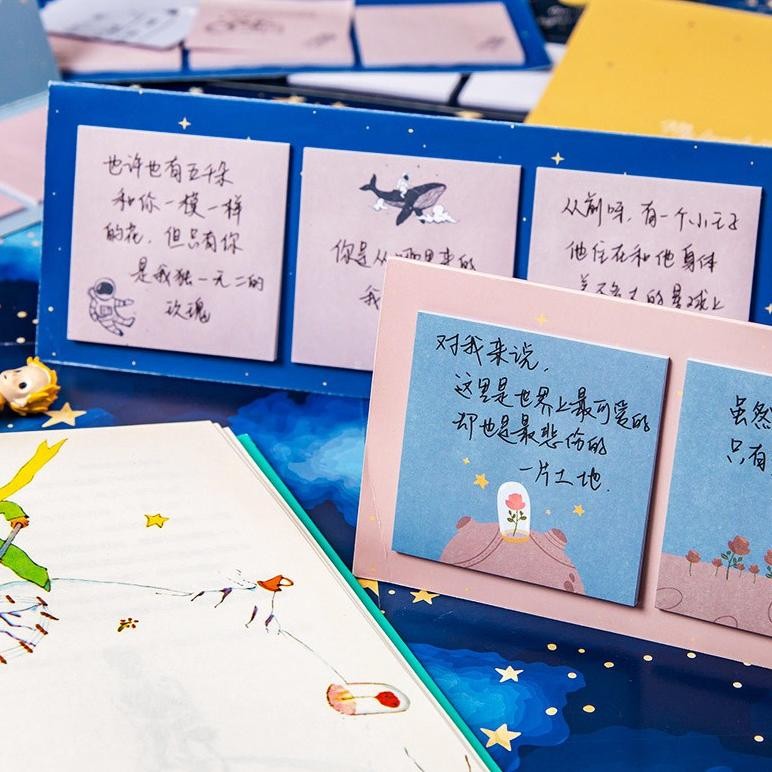 也许也有五千朵
和你一模一样
的花，但只有你
是我独一无二的
玫瑰
你是从哪里来的
我
从前呀，有一个小王子
他住在和他身体
差不多大的星球上
对我来说，
这里是世界上最可爱的
却也是最悲伤的
一片土地.
虽然
只有